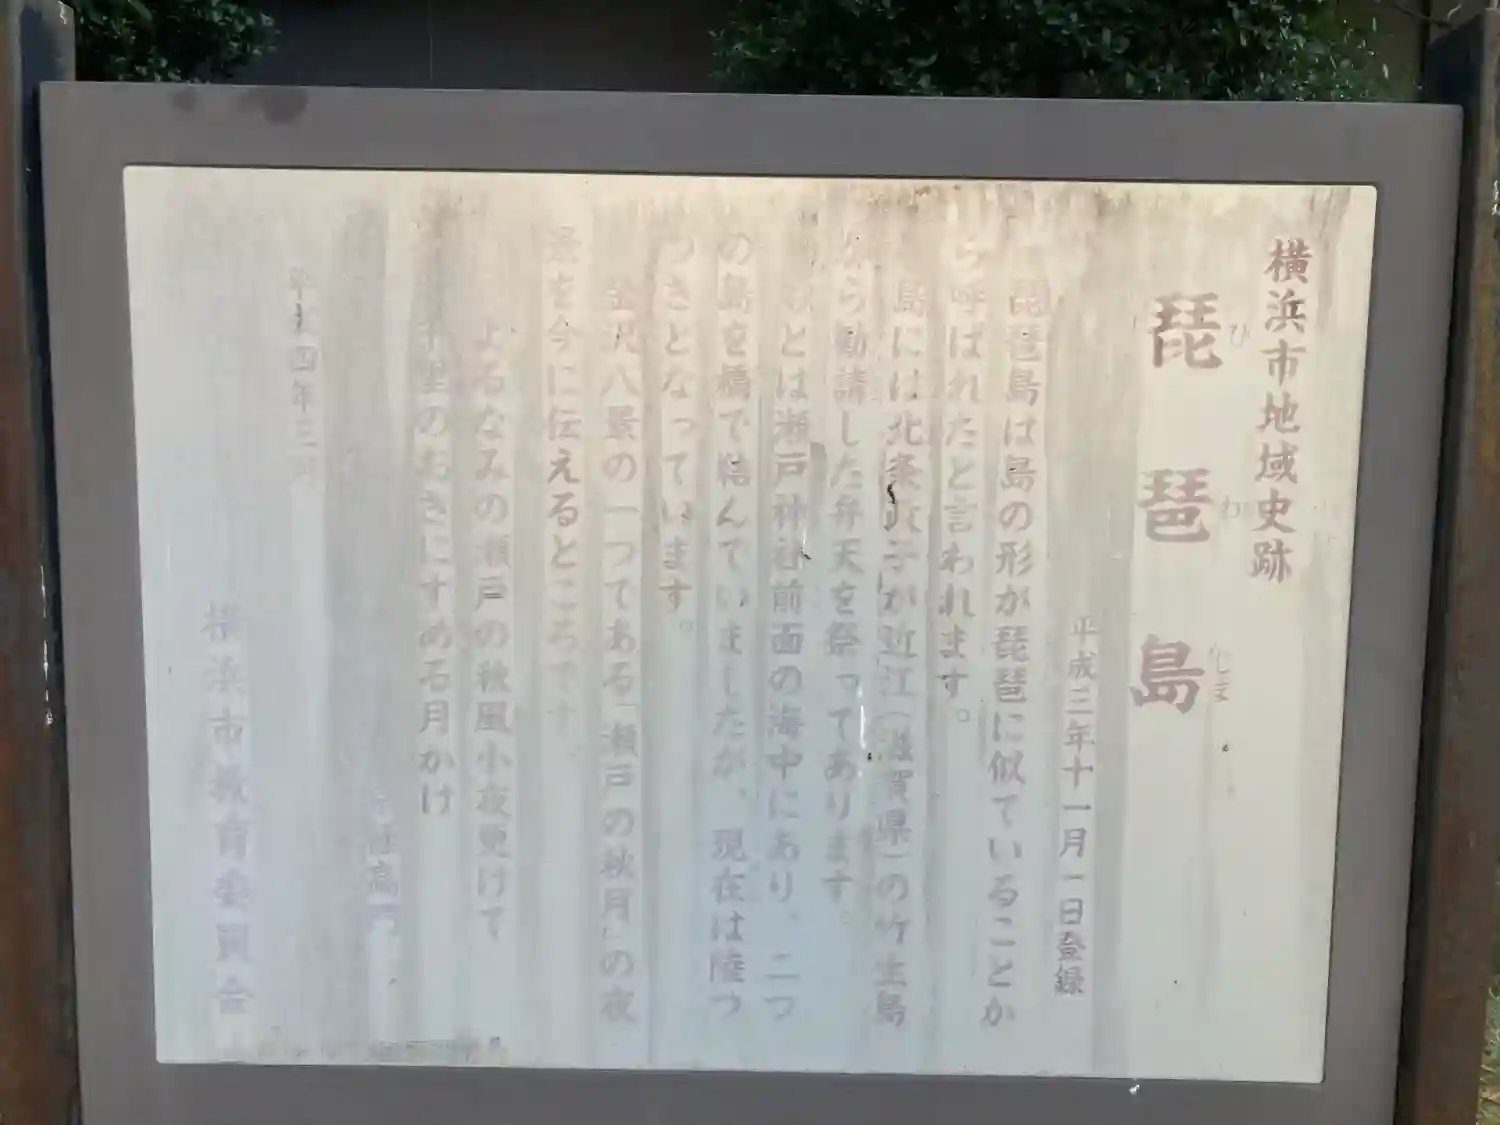 横浜市地域史跡
琵琶島
びわじま
平成三年十一月一日登録
琵琶島は島の形が琵琶に似ていることか
ら呼ばれたと言われます。
島には北条政子が近江(滋賀県)の竹生島
から勧請した弁天を祭ってあります。
とは瀬戸神社前面の海中にあり、二つ
の島を橋で結んでいましたが、現在は陸つ
づきとなっています。
金沢八景の一つである「瀬戸の秋月」の夜
景を今に伝えるところです。
よるなみの瀬戸の秋風小夜更けて
千里のおきにすめる月かけ
平成四年三月
横浜市教育委員会